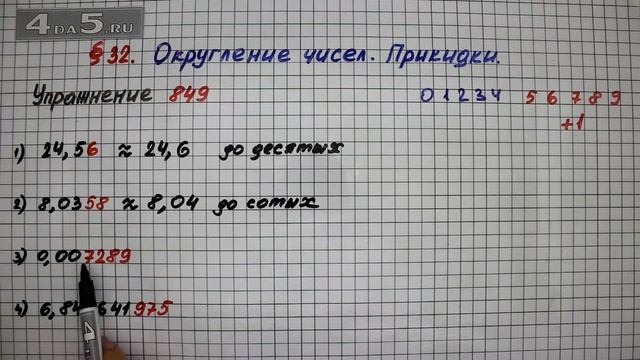 4DA5.RU
§ 32. Округление чисел. Прикидки.
Упражнение 849
0 1 2 3 4 5 6 7 8 9
+1
1) 24,56 ≈ 24,6 до десятых
2) 8,0358 ≈ 8,04 до сотых
3) 0,007289
4) 6,84 641975
4